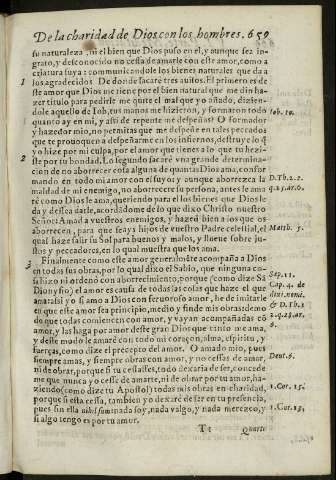 De la charidad de Dios con los hombres. 659
su naturaleza, ni el bien que Dios puso en el, y aunque sea in-
grato, y desconocido no cessa de amarle con este amor, como a
criatura suya: comunicandole los bienes naturales que da a
1 los agradecidos. De donde sacarè tres auisos. El primero es de
este amor que Dios me tiene por el bien natural que me dio ha-
zer titulo para pedirle me quite el mal que yo añado, dizien-
dole aquello de Iob, tus manos me hizieron, y formaron todo Iob. 10.
quanto ay en mi, y assi de repente me despeñas? O formador
y hazedor mio, no permitas que me despeñe en tales peccados
que te prouoquen a despeñarme en los infiernos, destruye lo q̃
yo hize por mi culpa, por el amor que tienes a lo que tu hezi-
2 ste por tu bondad. Lo segundo sacarè vna grande determina-
cion de no aborrecer cosa alguna de quantas Dios ama, confor
mando en todo mi amor con el suyo: y aunque aborrezca la
maldad de mi enemigo, no aborrecerè su persona, antes le ama D.Th.2.2.
rè como Dios le ama, queriendo para el los bienes que Dios le q.25.ar.6.
da y dessea darle, acordãdome de lo que dixo Christo nuestro
Señor: Amad a vuestros enemigos, y hazed bien a los que os
aborrecen, para que seays hijos de vuestro Padre celestial, el Matth. 5.
qual haze salir su Sol para buenos y malos, y llueue sobre ju-
stos y peccadores, en lo qual muestra que los ama.
3 Finalmente como este amor general siẽpre acompaña a Dios
en todas sus obras, por lo qual dixo el Sabio, que ninguna co- Sap.11.
sa hizo ni ordenò con aborrecimiento, porque (como dize Sã
Dionysio) el amor es causa de todas las cosas que haze el que Cap.4. de
ama: assi y o si amo a Dios con feruoroso amor, he de imitarle diui.nomi.
en que este amor sea principio, medio y fin de mis obras: de mo & D.Th.1
do que todas comiencen con amor, y vayan acompañadas cõ 2.q.28.ar.
amor, y las haga por amor deste gran Dios que tanto me ama, 6.
y deste modo le amarè con todo mi coraçon, alma, espiritu, y
fuerças, como dize el precepto del amor. O amado mio, pues Deut.6.
siempre amas, y siempre obras con amor, y no cessas de amar,
ni de obrar, porque si tu cessasses, todo dexaria de ser, concede
me que nunca yo cesse de amarte, ni de obrar por tu amor, ha-
ziendo (como dize tu Apostol) todas mis obras en charidad, 1.Cor.15.
porque si esta cessa, tambien yo dexarè de ser en tu presencia,
pues sin ella nihil sum nada soy, nada valgo, y nada merezco, y 1.Cor.13.
si algo tengo es por tu amor.
Tt Quarto